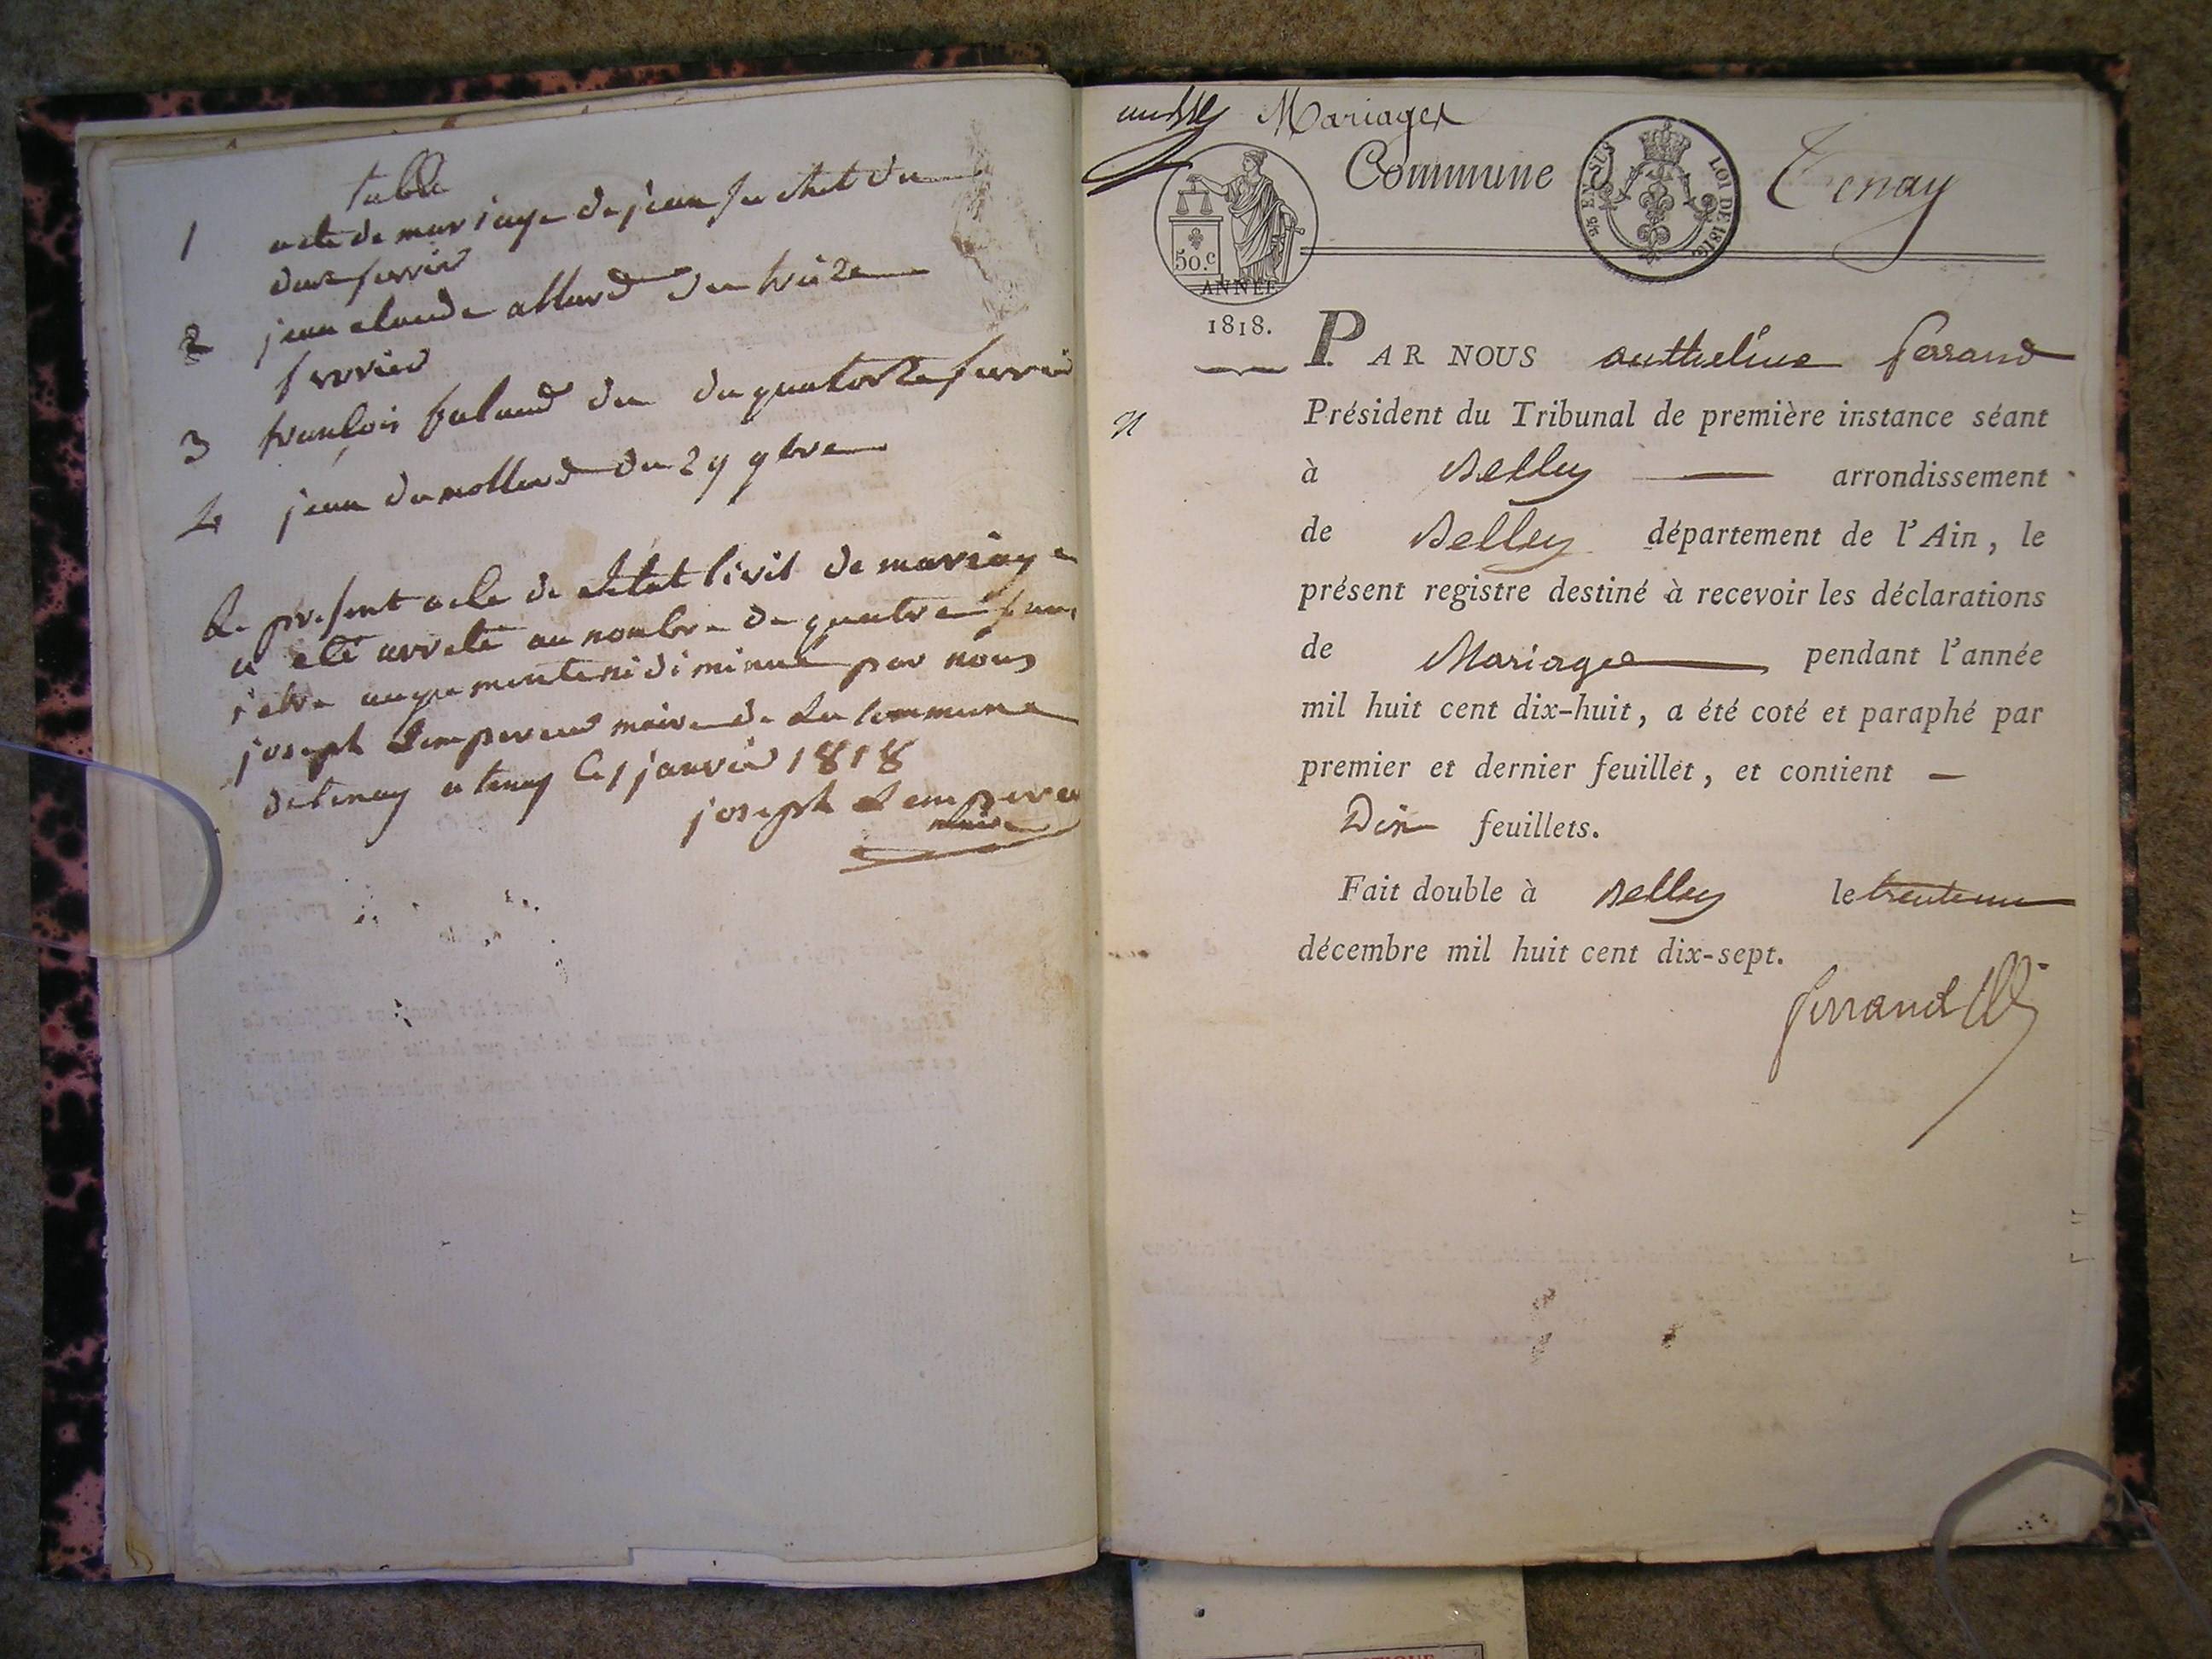 table
1 acte de mariage de jean suchet du
douze fevrier
2 jean claude allard du treize
fevrier
3 françois baland du du quatorze fevrier
4 jean dumollard du 29 9bre
Le present acte de letat civil de mariage
a été arreté au nombre de quatre sans
etre augmenté ni diminué par nous
joseph Lempereur maire de La commune
de tenay a tenay le 1 janvier 1818
joseph Lempereur
maire
Mariages
Commune Tenay
25 EN SUS LOI DE 1816
50.c
ANNÉE
1818.
PAR NOUS anthelme ferrand
Président du Tribunal de première instance séant
à Belley arrondissement
de Belley département de l'Ain, le
présent registre destiné à recevoir les déclarations
de Mariages pendant l'année
mil huit cent dix-huit, a été coté et paraphé par
premier et dernier feuillet, et contient —
Dix feuillets.
Fait double à Belley le trente un
décembre mil huit cent dix-sept.
ferrand